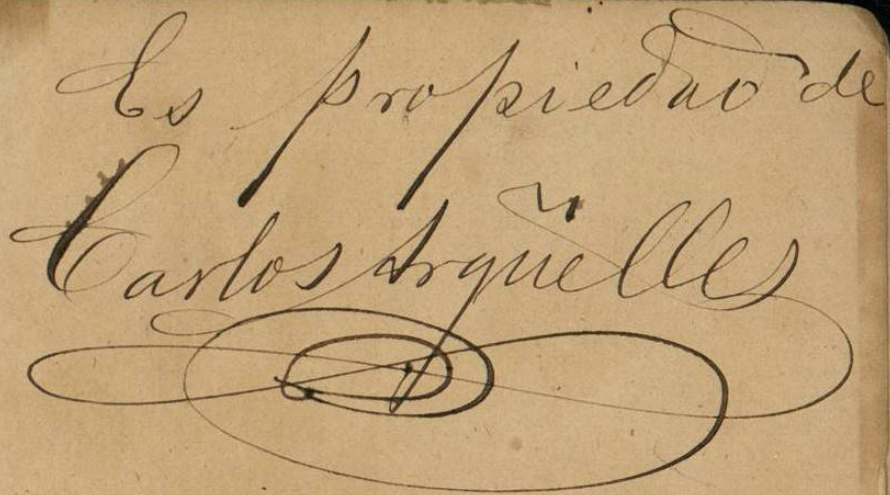 Es propiedad de
Carlos Argüelles